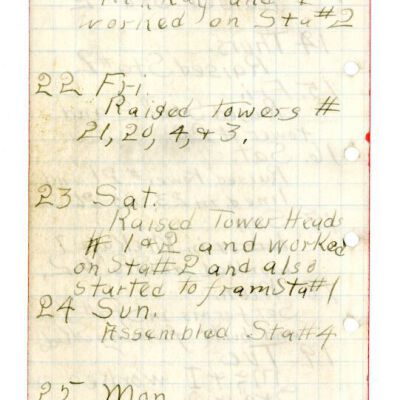 worked on Sta #2
22 Fri.
Raised Towers #
21, 20, 4, & 3.
23 Sat.
Raised Tower Heads
# 1 & 2 and worked
on Sta# 2 and also
started to fram Sta#1
24 Sun.
Assembled Sta#4
25 Mon